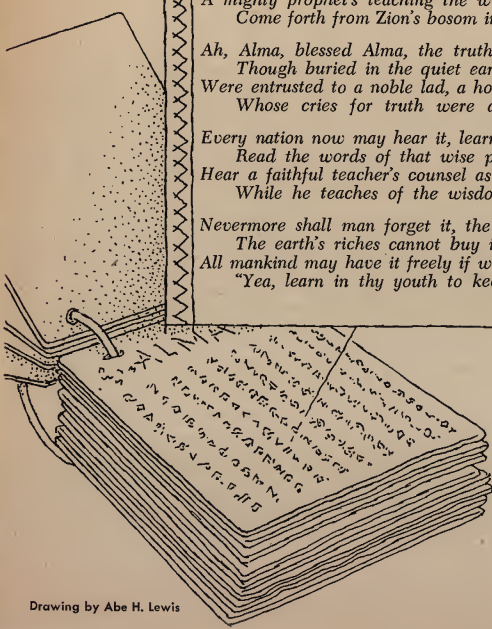 A mighty prophet's teaching the w
Come forth from Zion's bosom i
Ah, Alma, blessed Alma, the truth
Though buried in the quiet ear
Were entrusted to a noble lad, a ho
Whose cries for truth were a
Every nation now may hear it, learn
Read the words of that wise p
Hear a faithful teacher's counsel as
While he teaches of the wisdo
Nevermore shall man forget it, the
The earth's riches cannot buy i
All mankind may have it freely if w
"Yea, learn in thy youth to kee
ALMA
Drawing by Abe H. Lewis